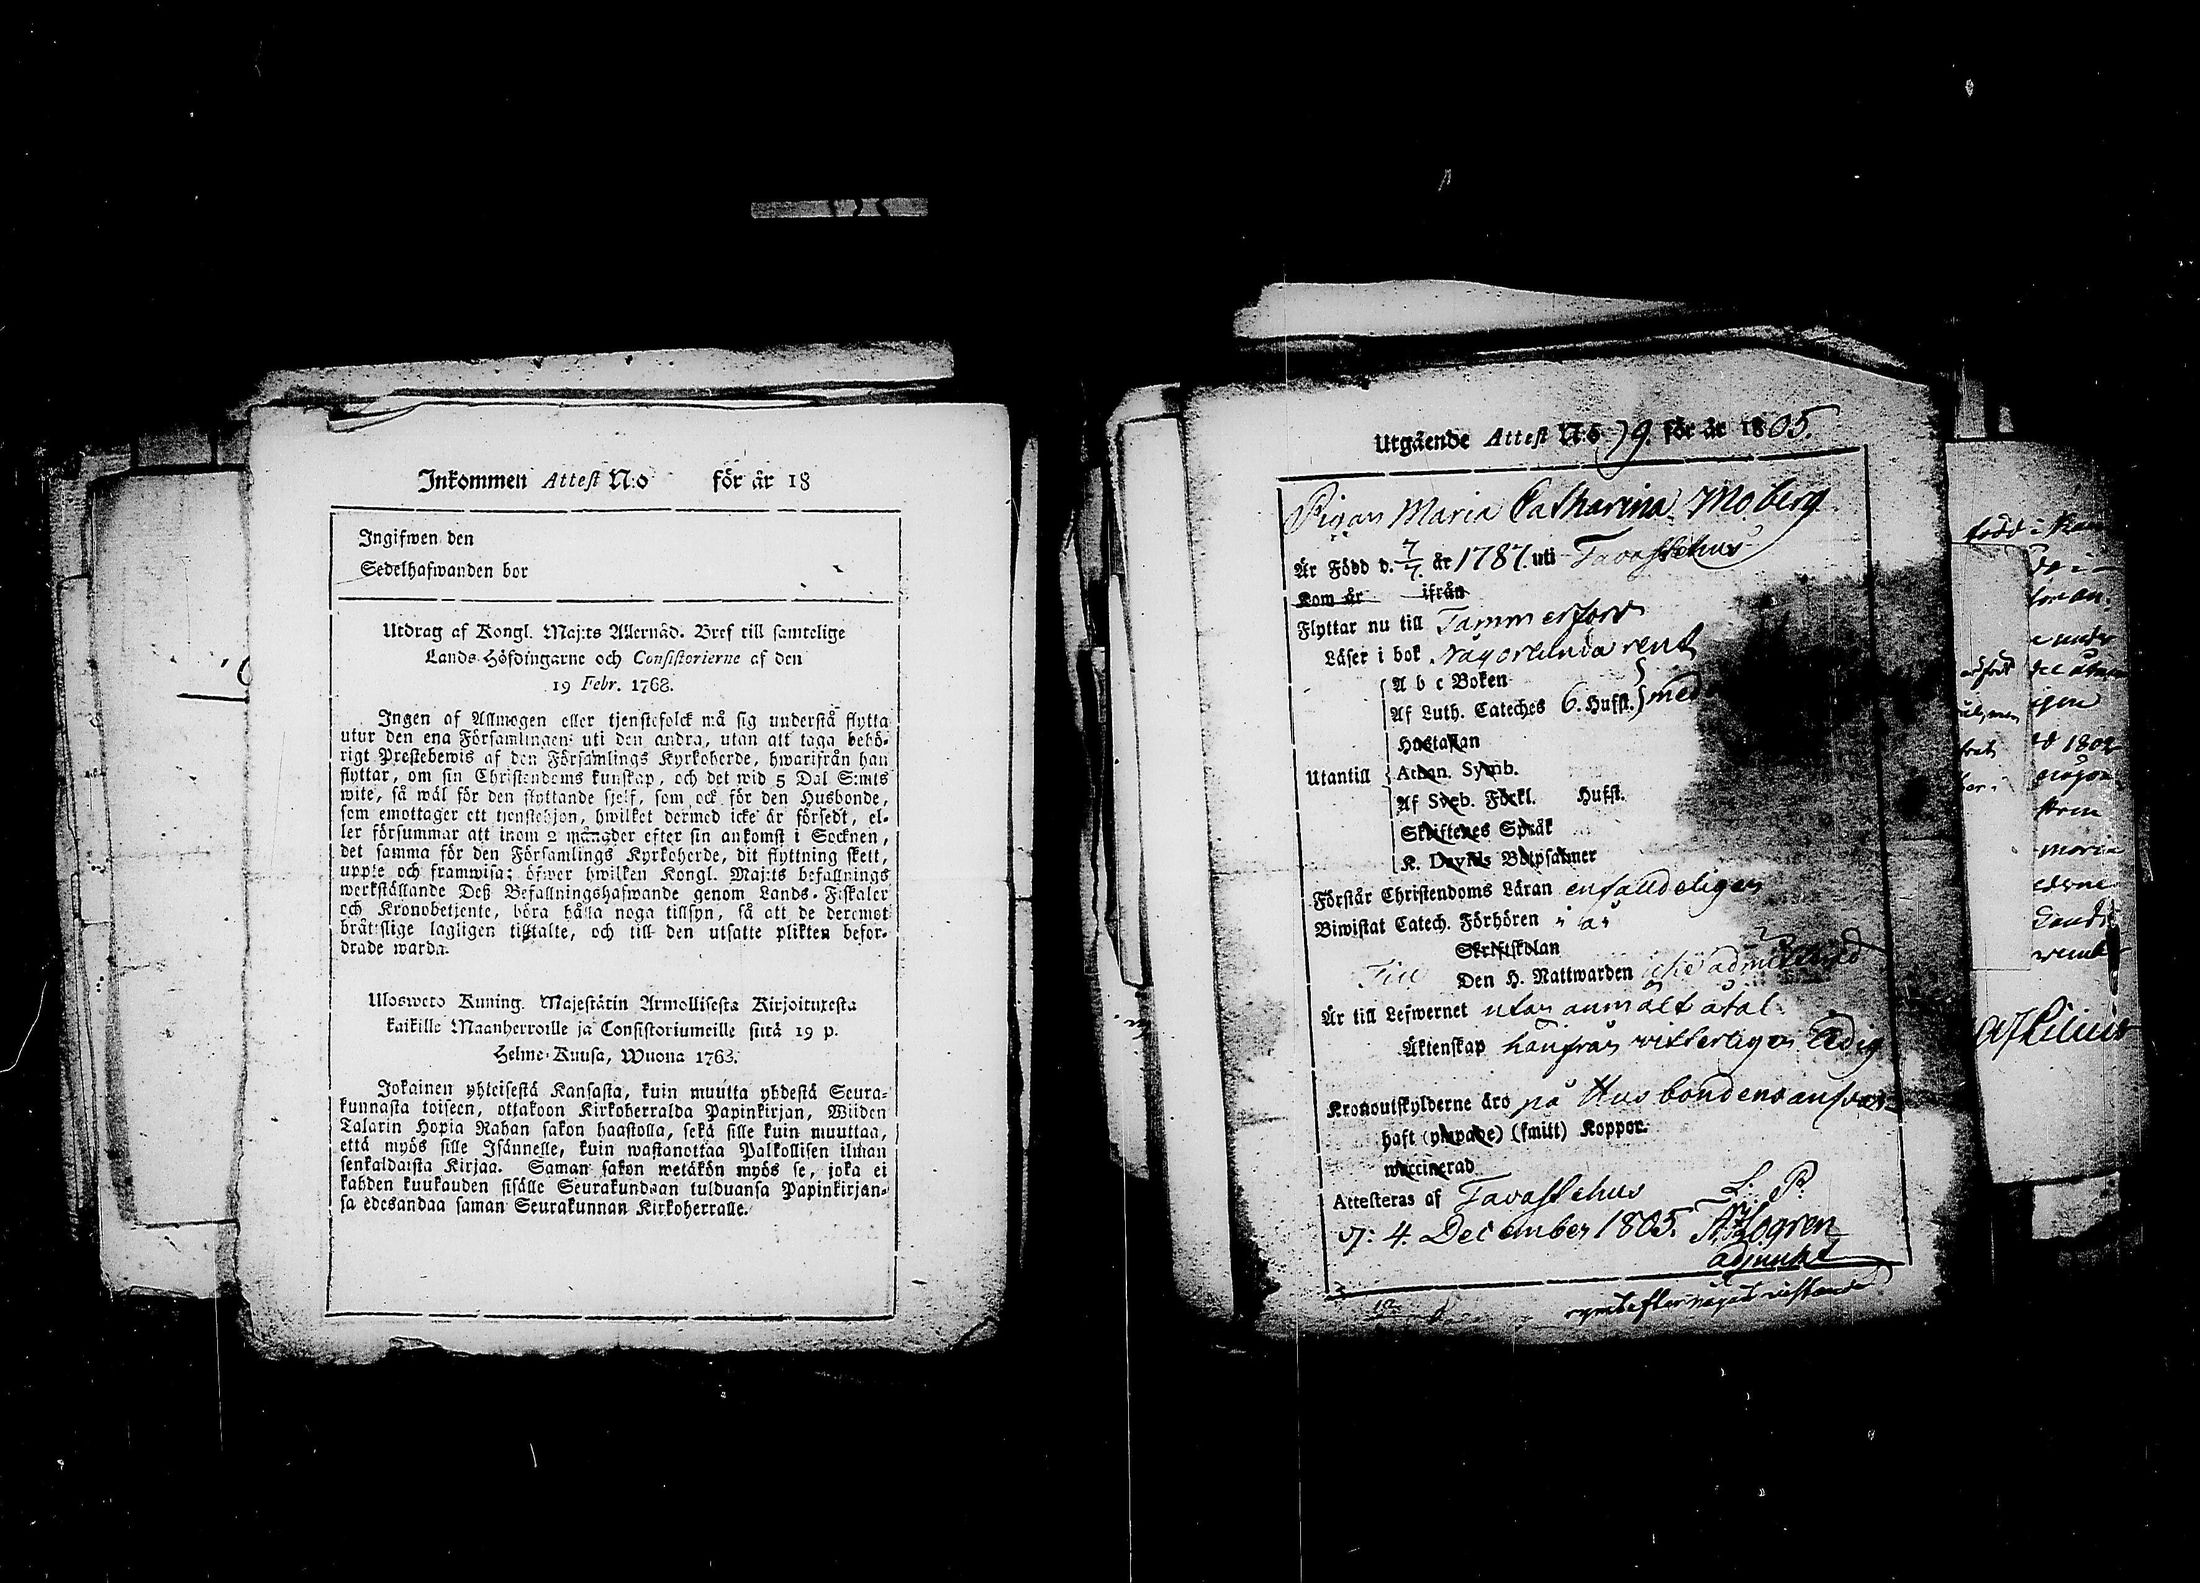 Inkommen Attest N:o för år 18
Ingifwen den
Sedelhafwanden bor
Utdrag af Kongl. Maj:ts Allernåd. Bref till samtelige
Lands-Höfdingarne och Consistorierne af den
19 Febr. 1768.
Ingen af Allmogen eller tjenstefolck må sig understå flytta
utur den ena Församlingen uti den andra, utan att taga behö-
rigt Prestebewis af den Församlings Kyrkoherde, hwarifrån han
flyttar, om sin Christendoms kunskap, och det wid 5 Dal S:mts
wite, så wäl för den flyttande sjelf, som ock för den Husbonde,
som emottager ett tjenstehjon, hwilket dermed icke är försedt, el-
ler försummar att inom 2 månader efter sin ankomst i Socknen,
det samma för den Församlings Kyrkoherde, dit flyttning skett,
uppte och framwisa; öfwer hwilken Kongl. Maj:ts befallnings
werkställande Deß Befallningshafwande genom Lands-Fiskaler
och Kronobetjente, böra hålla noga tillsyn, så att de deremot
brätslige lagligen tilltalte, och till den utsatte plikten befor-
drade warda.
Ulosweto Kuning. Majestätin Armollisesta Kirjoituxesta
kaikille Maanherroille ja Consistoriumeille siitä 19 p.
Helme-Kuusa, Wuona 1768.
Jokainen yhteisestä Kansasta, kuin muutta yhdestä Seura-
kunnasta toiseen, ottakoon Kirkoherralda Papinkirjan, Wiiden
Talarin Hopia Rahan sakon haastolla, sekä sille kuin muuttaa,
että myös sille Isännelle, kuin wastanottaa Palkollisen ilman
senkaldaista Kirjaa. Saman sakon wetäkön myös se, joka ei
kahden kuukauden sisälle Seurakundaan tulduansa Papinkirjan-
sa edesandaa saman Seurakunnan Kirkoherralle.
Utgående Attest N:o 79. för år 1805.
Pigan Maria Catharina Moberg
Är Född d. 7/7. år 1787. uti Tavastehus
Kom år ifrån
Flyttar nu till Tammerfors
Läser i bok Någorlunda rent
A b c Boken
Af Luth. Cateches 6. Hufst. } med
Hustaflan
Utantill Athan. Symb.
Af Sveb. Förkl. Hufst.
Skriftenes Språk
K. Davids Botpsalmer
Förstår Christendoms Läran enfalldeligen
Biwistat Catech. Förhören
Skriftskolan
Till Den H. Nattwarden icke admitterad
Är till Lefwernet utan anmält åtal
Äktenskap härifrån vitterligen Ledig
Kronoutskylderne äro på Husbondens answar
haft (ympade) (smitt) Koppor.
waccinerad
Attesteras af Tavastehus L. P.
d: 4. December 1805.
adjunkt
född i
1802